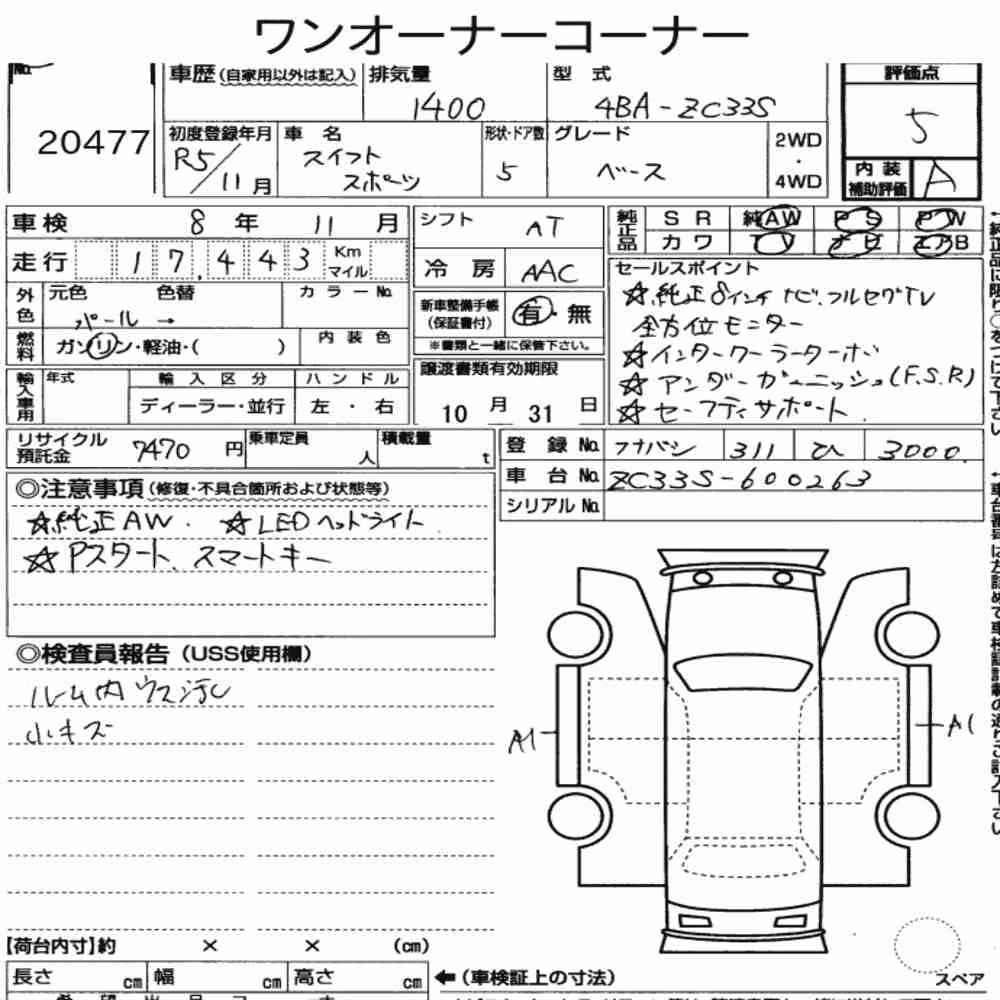 ワンオーナーコーナー
No.
20477
車歴(自家用以外は記入) 排気量 型 式 評価点
1400 4BA-ZC33S 5
初度登録年月 車 名 形状・ドア数 グレード 2WD・4WD
R5/11月 スイフト スポーツ 5 ベース
内装補助評価 A
車検 8 年 11 月
シフト AT
純正品 SR 純AW PS PW
カワ TV ナビ エアB
走行 17,443 Km マイル
冷房 AAC
セールスポイント
☆純正8インチナビ.フルセグTV
全方位モニター
☆インタークーラーターボ
☆アンダーガーニッシュ(F.S.R)
☆セーフティサポート
外色 元色 色替 カラーNo.
パール →
新車整備手帳(保証書付) 有・無
※書類と一緒に保管下さい。
燃料 ガソリン・軽油・( ) 内装色
輸入車用 年式 輸入区分 ハンドル
ディーラー・並行 左・右
譲渡書類有効期限
10 月 31 日
リサイクル預託金 7470 円 乗車定員 人 積載量 t
登録No. フナバシ 311 ひ 3000.
車台No. ZC33S-600263
シリアルNo.
◎注意事項(修復・不具合箇所および状態等)
☆純正AW. ☆LEDヘッドライト
☆Pスタート、スマートキー
◎検査員報告(USS使用欄)
ルーム内ウス汚レ
小キズ
A1
A1
【荷台内寸】約 × × (cm)
長さ cm 幅 cm 高さ cm
←(車検証上の寸法)
スペア